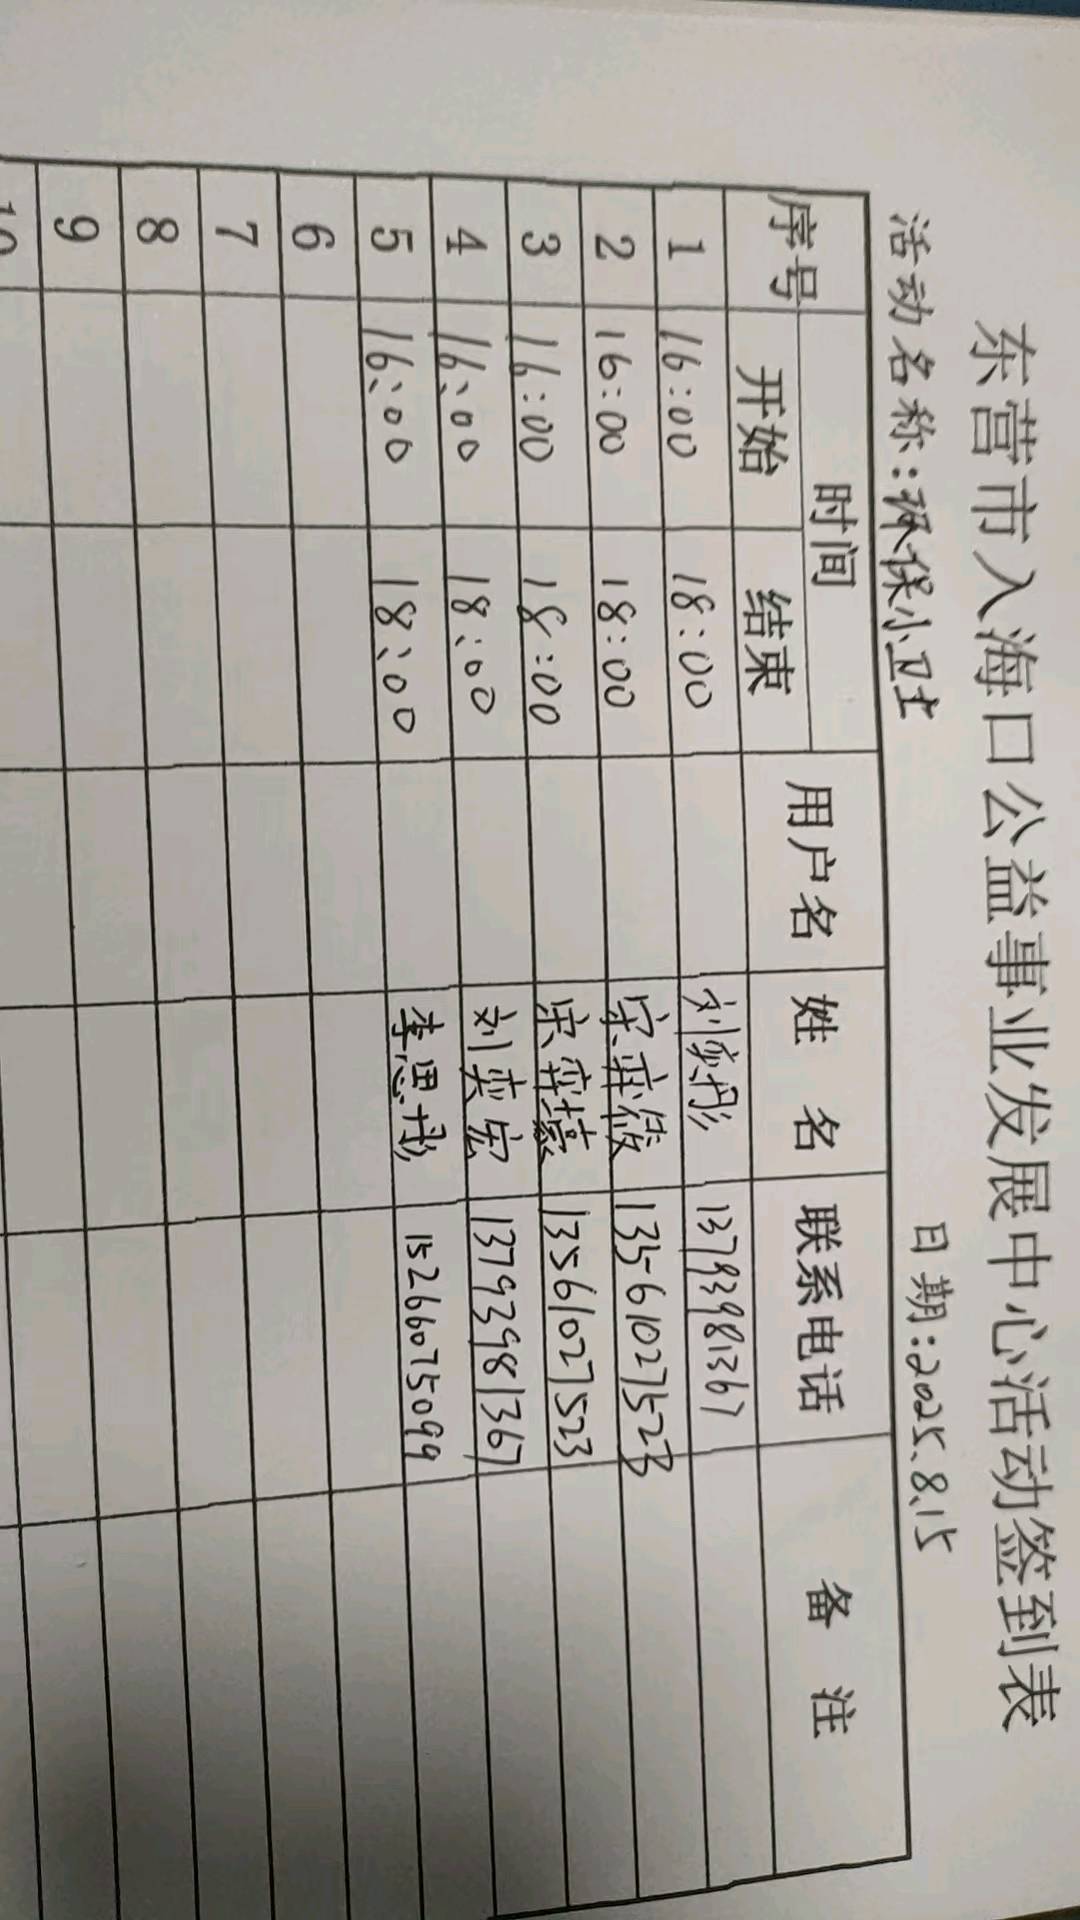 东营市入海口公益事业发展中心活动签到表
活动名称:环保小卫士 日期:2025.8.15
序号 时间 用户名 姓名 联系电话 备注
开始 结束
1 16:00 18:00 刘奕彤 13793981367
2 16:00 18:00 宋 13561027523
3 16:00 18:00 宋 13561027523
4 16:00 18:00 刘奕宏 13793981367
5 16:00 18:00 李思彤 15266075099
6
7
8
9
10